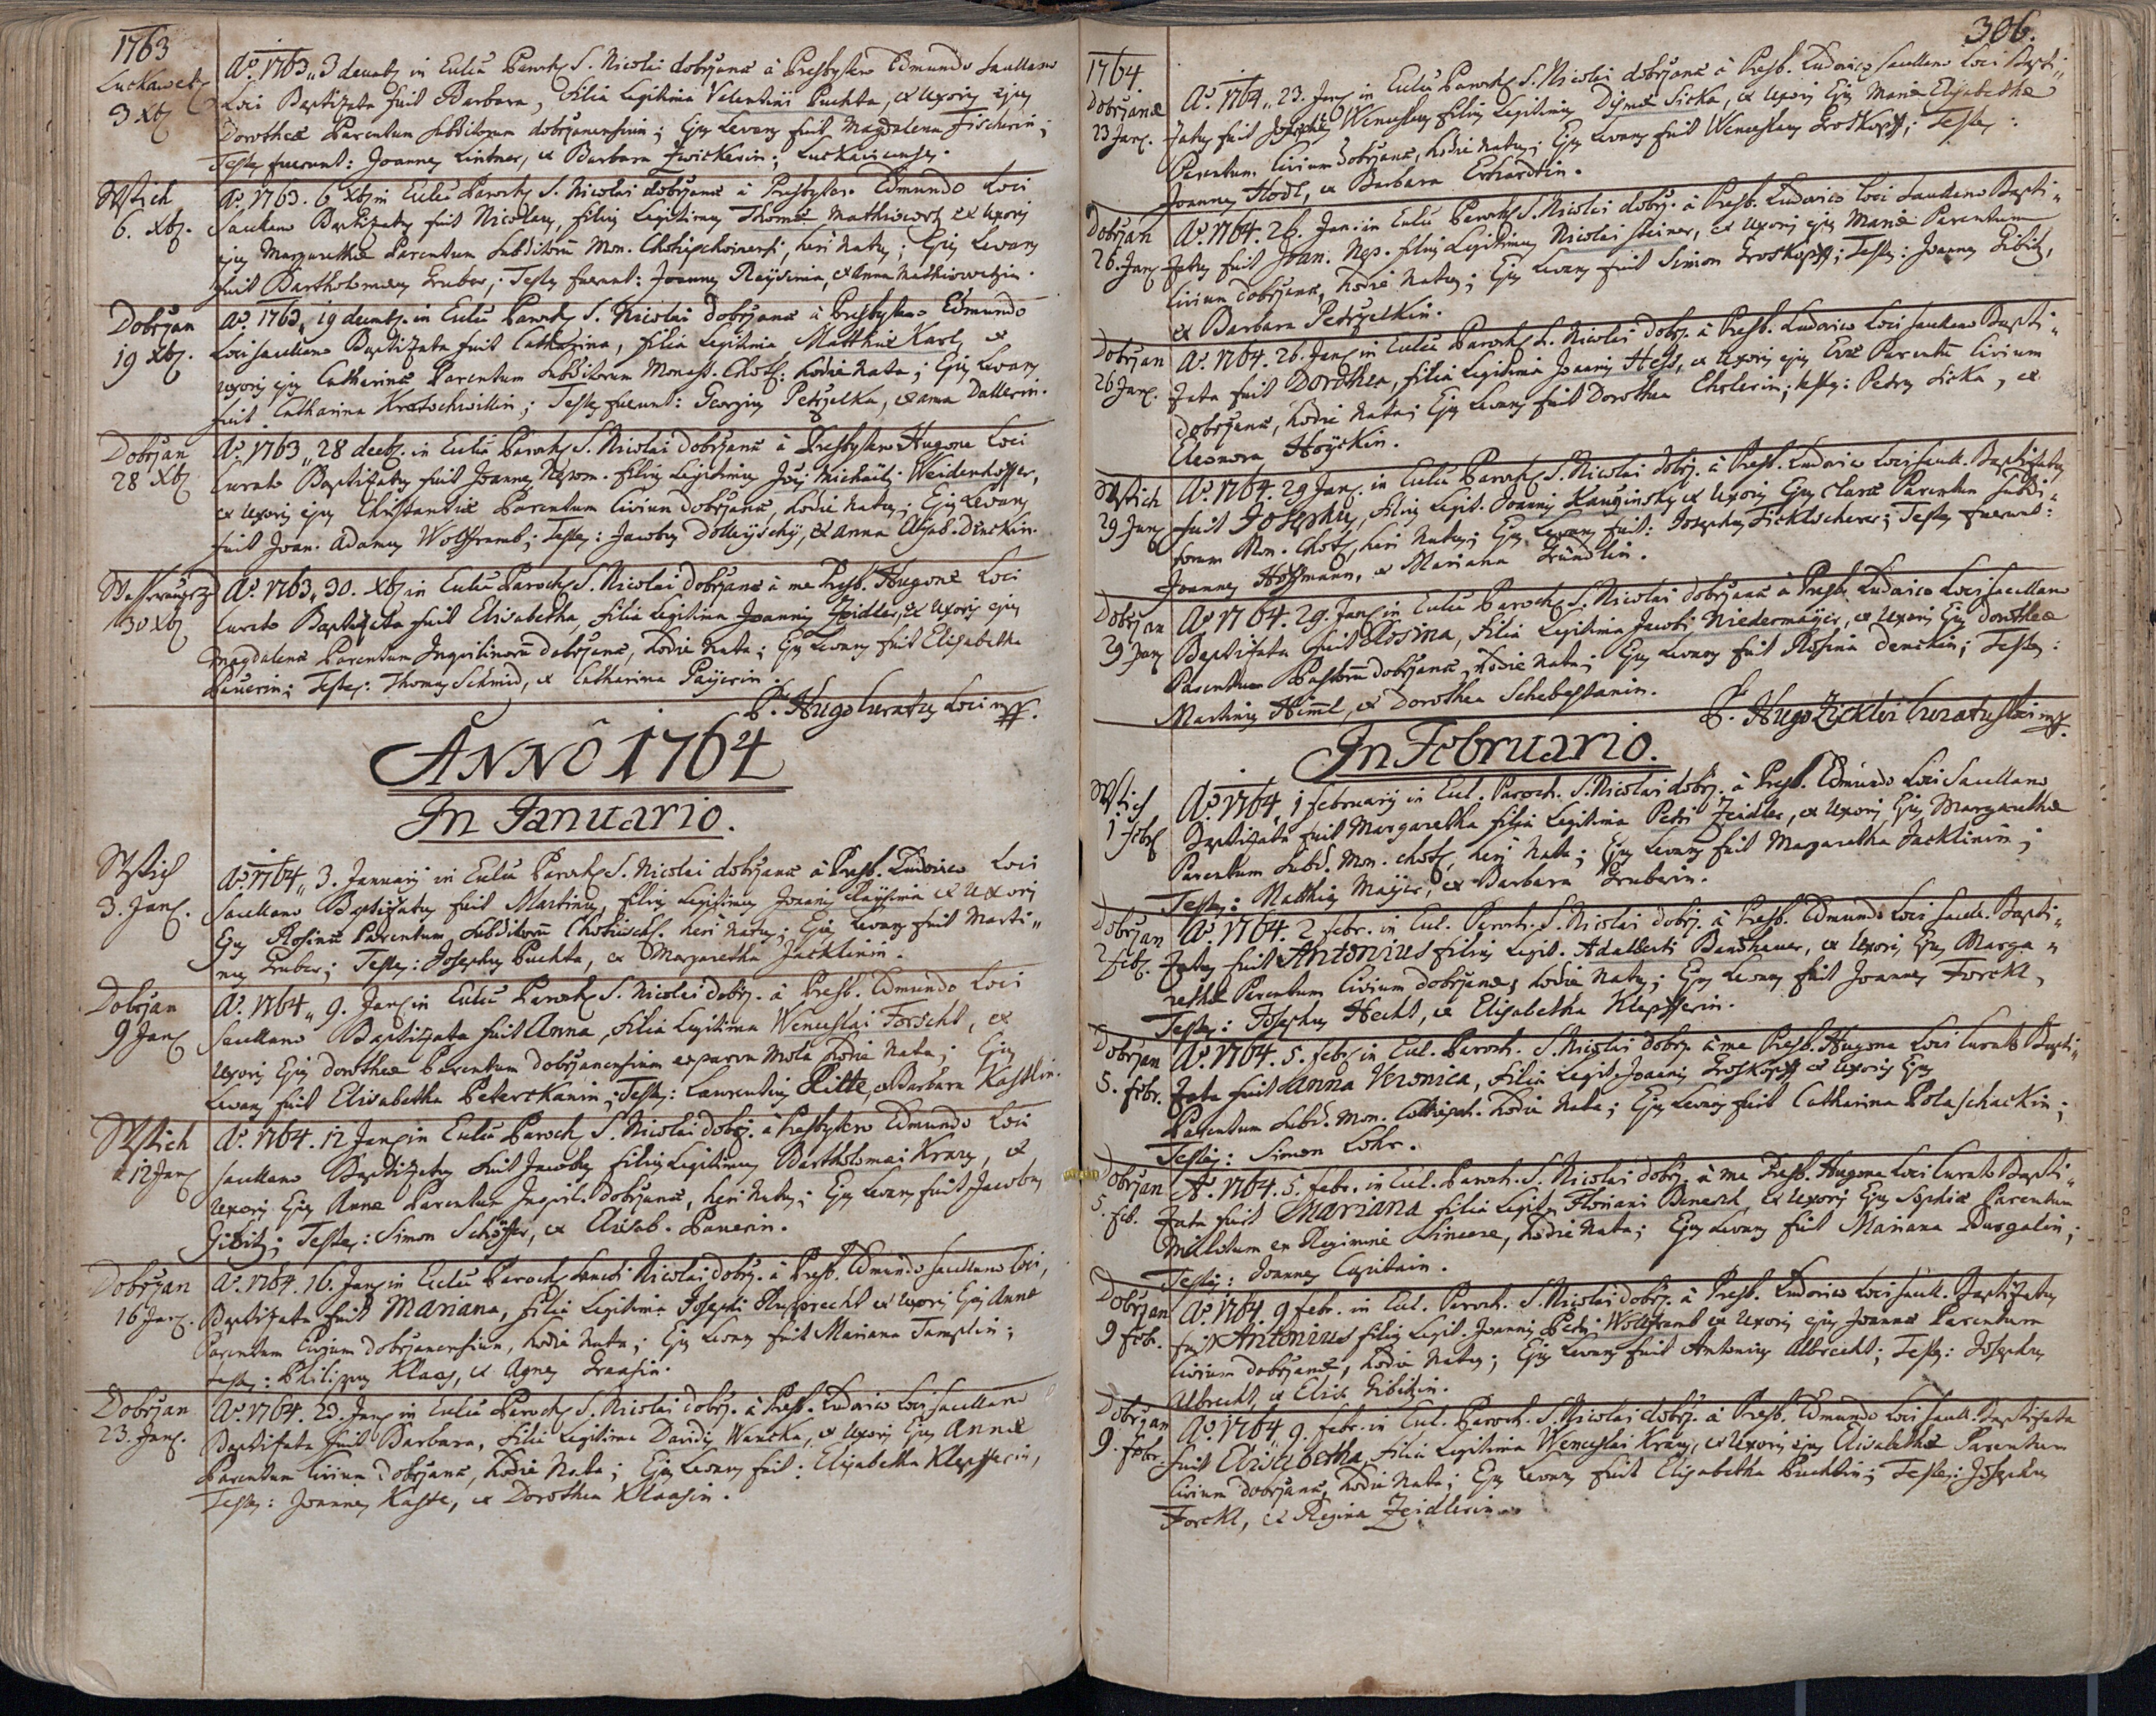 1763
Luckawetz
3 Xb
Aõ. 1763„ 3 decemb in Eccliâ Paroch S. Nicolai dobrzanæ à Presbytero Edmundo Sacellano
Loci Baptizata fuit Barbara, Filia Legitima Valentini Puchta, et Uxoris ejus
Dorotheæ Parentum subditorum dobrzanensium; Ejus Levans fuit Magdalena Fischerin;
Testes fuerunt: Joannes Lintner, et Barbara Zwickerin; Luckavicenses.
Wstich
6. Xb.
Aõ. 1763. 6 Xb in Eccliâ Paroch S. Nicolai dobrzanæ à Presbytero Edmundo Loci
Sacellano Baptizatus fuit Nicolaus, Filius Legitimus Thomæ Mathiowetz et Uxoris
ejus Margarethæ Parentum Subditorũ Mon. Chotieschoviensis, heri natus; Ejus Levans
fuit Bartholomæus Gruber; Testes fuerunt: Joannes Raysima, et Anna Mathiowetzin.
Dobrzan
19 Xb.
Aõ. 1763„ 19 decemb. in Eccliâ Paroch S. Nicolai dobrzanæ à Presbytero Edmundo
Loci Sacellano Baptizata fuit Catharina, filia Legitima Matthiæ Karl, et
uxoris ejus Catharinæ Parentum Subditorum Monast. Chot: hodie nata; Ejus Levans
fuit Catharina Kratschwillin; Testes fuerunt: Georgius Petrzelka, et Anna Dallerin.
Dobrzan
28 Xb
Aõ. 1763„ 28 decb. in Eccliâ Paroch S. Nicolai dobrzanæ à Presbytero Hugone Loci
Curato Baptizatus fuit Joannes Nepom. filius Legitimus Michaëlis Weidenhoffer,
et Uxoris ejus Christantiæ Parentum Civium dobrzanæ, hodie natus; Ejus Levans
fuit Joan. Adamus Wolfframb; Testes: Jacobus Dolleyschy, et Anna Elisab. Denckin.
30 Xb
Aõ. 1763„ 30. Xb in Eccliâ Paroch S. Nicolai dobrzanæ à me Presb. Hugone Loci
Curato Baptizata fuit Elisabetha, filia Legitima Joannis Zeidler, et Uxoris ejus
Magdalenæ Parentum Inquilinorũ dobrzanæ, hodie nata; Ejus Levans fuit Elisabetha
Pauerin; Testes: Thomas Schmid, et Catharina Payerin.
P. Hugo Curatus Loci mpp.
ANNÕ 1764
In Januario.
Wstich
3. Jan.
Aõ. 1764„ 3. Januarij in Eccliâ Paroch S. Nicolai dobrzanæ à Presb. Ludovico Loci
Sacellano Baptizatus fuit Martinus, filius Legitimus Joannis Raysima et Uxoris
Ejus Rosinæ Parentum Subditorũ Chotiesch. heri natus; Ejus Levans fuit Marti„
nus Gruber; Testes: Josephus Puchta, et Margaretha Jacklinin.
Dobrzan
9 Jan
Aõ. 1764„ 9. Jan in Eccliâ Paroch S. Nicolai dobrz. à Presb. Edmundo Loci
Sacellano Baptizata fuit Anna, filia Legitima Wenceslai Forscht, et
Uxoris Ejus dorotheæ Parentum dobrzanensium ex parva Mola hodie nata; Ejus
Levans fuit Elisabetha Peterckanin; Testes: Laurentius Ritte, et Barbara Kastlin.
Wstich
12 Jan
Aõ. 1764. 12 Jan in Eccliâ Paroch S. Nicolai dobrz. à Presbytero Edmundo Loci
Sacellano Baptizatus fuit Jacobus filius Legitimus Bartholomæi Kraus, et
Uxoris Ejus Annæ Parentum Inquil. dobrzanæ, heri natus; Ejus Levans fuit Jacobus
Gibitz; Testes: Simon Schöffer, et Elisab. Pauerin.
Dobrzan
16 Jan.
Aõ. 1764. 16. Jan in Eccliâ Paroch Sancti Nicolai dobrz. à Presb. Edmundo Sacellano Loci,
Baptizata fuit Mariana, filia Legitima Josephi Rupprecht et Uxoris Ejus Annæ
Parentum Civium dobrzanensium, hodie nata; Ejus Levans fuit Mariana Tamplin;
testes: Philippus Klaas, et Agnes Graasin.
Dobrzan
23. Jan.
Aõ. 1764. 23. Jan in Eccliâ Paroch S. Nicolai dobrz. à Presb. Ludovico Loci Sacellano
Baptizata fuit Barbara, filia Legitima Davidis Wancka, et Uxoris Ejus Annæ
Parentum Civium dobrzanæ, hodie nata; Ejus Levans fuit: Elisabetha Klepfferin,
Testes: Joannes Kaste, et Dorothea Klaasin.
306.
1764.
Dobrzanæ
23 Jan.
Aõ. 1764„ 23. Jan in Eccliâ Paroch S. Nicolai dobrzanæ à Presb. Ludovico Sacellano Loci Bapti„
zatus fuit Josephus Wenceslaus filius Legitimus Sicka, et Uxoris Ejus Mariæ Elisabethæ
Parentum Civium dobrzanæ, hodie natus; Ejus Levans fuit Wenceslaus Groskopff; Testes:
Joannes Hodl, et Barbara Erhardtin.
Dobrzan
26. Jan.
Aõ. 1764. 26. Jan: in Eccliâ Paroch S. Nicolai dobrz. à Presb. Ludovico Loci Sacellano Bapti„
zatus fuit Joan. Nep. filius Legitimus Nicolai Steiner, et Uxoris ejus Mariæ Parentum
Civium dobrzanæ, hodie natus; Ejus Levans fuit Simon Groskopff; Testes: Joannes Gibitz,
et Barbara Petrzelkin.
Dobrzan
26 Jan.
Aõ. 1764. 26. Jan in Eccliâ Paroch S. Nicolai dobrz. à Presb. Ludovico Loci Sacellano Bapti„
zata fuit Dorothea, filia Legitima Joannis Hess, et Uxoris ejus Evæ Parentũ Civium
dobrzanæ, hodie nata; Ejus Levans fuit Dorothea Eholerin; testes: Petrus Sicka, et
Eleonora Hoyckin.
Wstich
29 Jan
Aõ. 1764. 29 Jan. in Eccliâ Paroch S. Nicolai dobrz. à Presb. Ludovico Loci Sacell. Baptizatus
fuit Josephus, filius Legit. Joannis Kauzinsky et Uxoris Ejus Claræ Parentum Subdi„
torum Mon. Chot, heri natus; Ejus Levans fuit: Josephus Ficktscherer; Testes fuerunt:
Joannes Hoffmann, et Mariana Gründlin.
Dobrzan
29 Jan
Aõ 1764. 29. Jan in Eccliâ Paroch S. Nicolai dobrzanæ à Presb. Ludovico Loci Sacellano
Baptizata fuit Rosina, filia Legitima Jacobi Niedermayer, et Uxoris Ejus Dorotheæ
Parentum Pastorũ dobrzanæ, hodie nata; Ejus Levans fuit Rosina Denckin; Testes:
Martinus Himml, et Dorothea Schebestanin.
P. Hugo Zickler Curatus Loci mpp.
In Februario.
Wstich
1 Feb
Aõ. 1764„ 1 februarij in Eccl. Paroch. S. Nicolai dobrz. à Presb. Edmundo Loci Sacellano
Baptizata fuit Margaretha filia Legitima Petri Zeidler, et Uxoris Ejus Margarethæ
Parentum Subd. Mon. Chot, heri nata; Ejus Levans fuit Margaretha Jacklinin;
Testes: Matthias Mayer, et Barbara Gruberin.
Dobrzan
2 feb.
Aõ. 1764. 2 febr. in Eccl. Paroch. S. Nicolai dobrz. à Presb. Edmundo Loci Sacell. Bapti„
zatus fuit Antonius filius Legit. Adalberti Banshauer, et Uxoris Ejus Marga„
rethæ Parentum Civium dobrzanæ, hodie natus; Ejus Levans fuit Joannes Forckl,
Testes: Josephus Hecht, et Elisabetha Klepfferin.
Dobrzan
5. febr.
Aõ. 1764. 5. feb in Eccl. Paroch. S. Nicolai dobrz. à me Presb. Hugone Loci Curato Bapti„
zata fuit Anna Veronica, filia Legit. Joannis Groskopff et Uxoris Ejus
Parentum Subd. Mon. Chotiesch. hodie nata; Ejus Levans fuit Catharina Polaschackin;
Testis: Simon Lohr.
Dobrzan
5. feb.
Aõ. 1764. 5. febr. in Eccl. Paroch. S. Nicolai dobrz. à me Presb. Hugone Loci Curato Bapti„
zata fuit Mariana filia Legit. Floriani Benesch, et Uxoris Ejus Sophiæ Parentum
Militum ex Regimine Sincere, hodie nata; Ejus Levans fuit Mariana Purgalin;
Testis: Joannes Capitain.
Dobrzan
9 feb.
Aõ. 1764. 9 febr. in Eccl. Paroch. S. Nicolai dobrz. à Presb. Ludovico Loci Sacell. Baptizatus
fuit Antonius filius Legit. Joannis Petri Wolfframb et Uxoris ejus Joannæ Parentum
Civium dobrzanæ, hodie natus; Ejus Levans fuit Antonius Albrecht; Testes: Josephus
Albrecht, et Elis. Gibitzin.
Dobrzan
9. febr.
Aõ. 1764„ 9. febr. in Eccl. Paroch. S. Nicolai dobrz. à Presb. Edmundo Loci Sacell. Baptizata
fuit Elisabetha, filia Legitima Wenceslai Kraus, et Uxoris ejus Elisabethæ Parentum
Civium dobrzanæ, hodie nata; Ejus Levans fuit Elisabetha Puchtin; Testes: Josephus
Forckl, et Regina Zeidlerin.